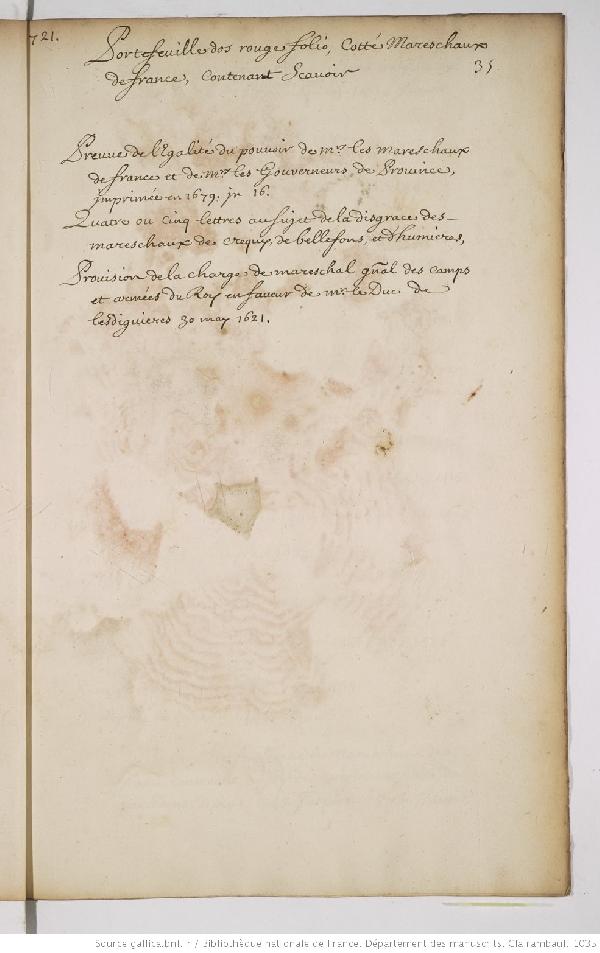 721.
Portefeuille dos rouge folio, Cotté Mareschaux
de france, Contenant Scavoir
35
Preuve de l'Egalité du pouvoir de mrs les mareschaux
de france et de mrs les Gouverneurs de Province,
imprimée en 1679. in 16.
Quatre ou Cinq lettres au sujet de la disgrace des
mareschaux de crequy, de bellefons, et d'humieres,
Provision de la charge de mareschal gñal des camps
et armées du Roy en faveur de mr le Duc de
lesdiguieres 30 may 1621.
Source gallica.bnf.fr / Bibliothèque nationale de France. Département des manuscrits. Clairambault 1035